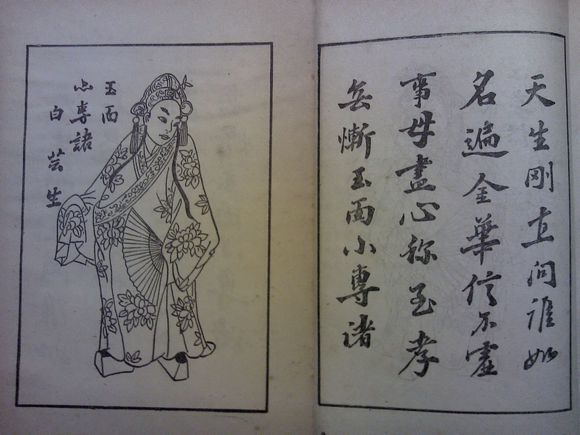 天生剛直问谁如
名遍金華信不虛
事母盡心称至孝
無慚玉面小專诸
玉面
小專諸
白芸生